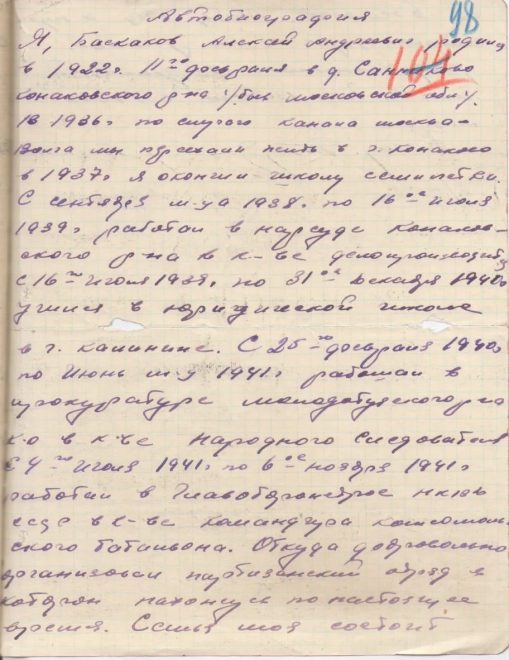 98
Автобиография
104
Я, Баскаков Алексей Андреевич родился
в 1922г. 11го февраля в д.
Конаковского р-на Московской обл.
В 1936г. по случаю канала Москва-
Волга мы переехали жить в г. Конаково
в 1937г я окончил школу семилетку.
С сентября м-ца 1938г. по 16ое июля
1939г работал в нарсуде Конаков-
ского р-на в к-ве делопроизвод
с 16го июля 1939г. по 31ое декабря 1940г
учился в юридической школе
в г. Калинине. С 25го февраля 1940г
по Июнь м-ц 1941г работал в
прокуратуре Молодотудского р-на
в к-ве Народного Следователя
С 4го июля 1941г по 6ое ноября 1941г
работал в Главоборонстрое НКВД
ссср в к-ве командира комсомоль-
ского батальона. Откуда добровольно
организовал партизанский отряд в
котором нахожусь по настоящее
время. Семья моя состоит